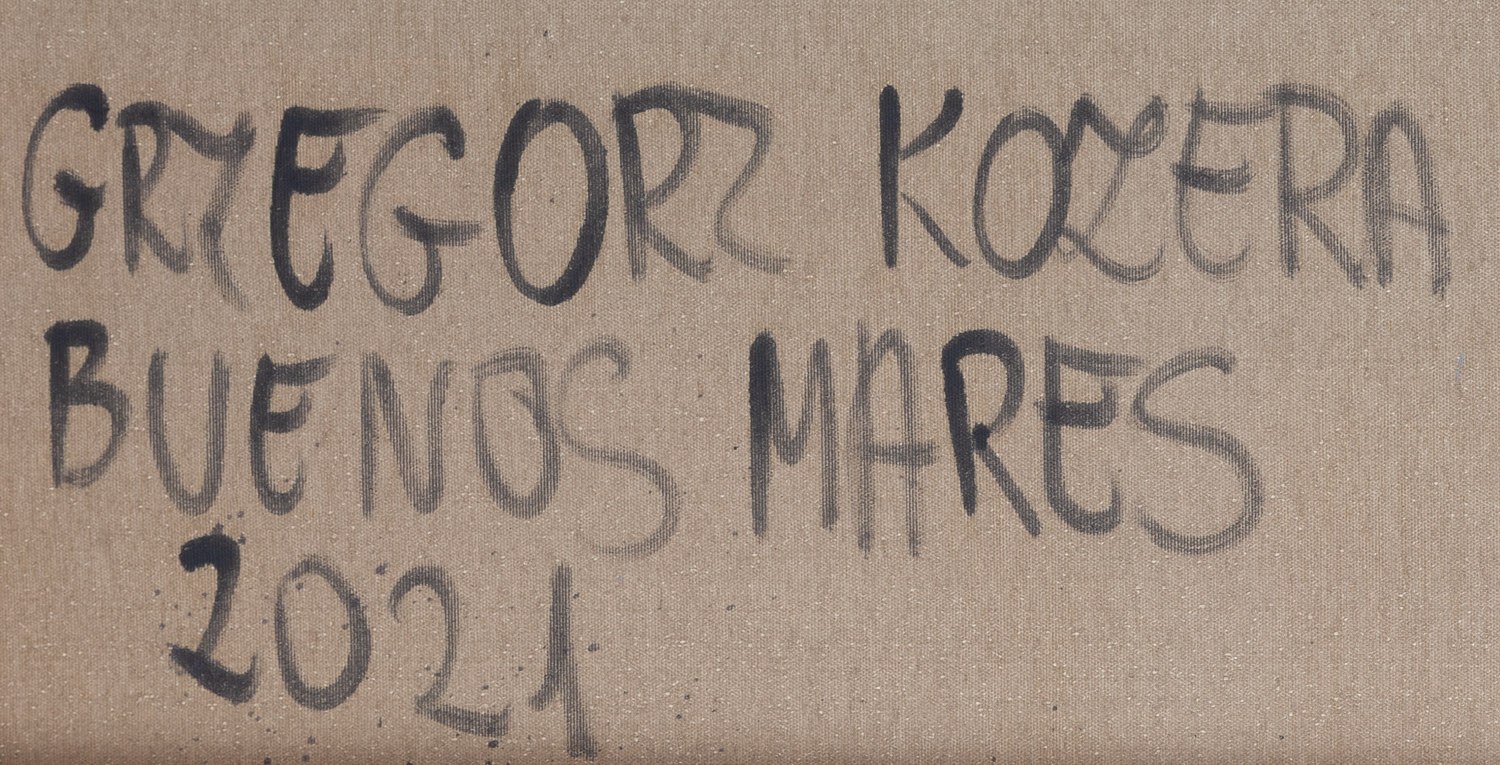 GRZEGORZ KOZERA
BUENOS MARES
2021